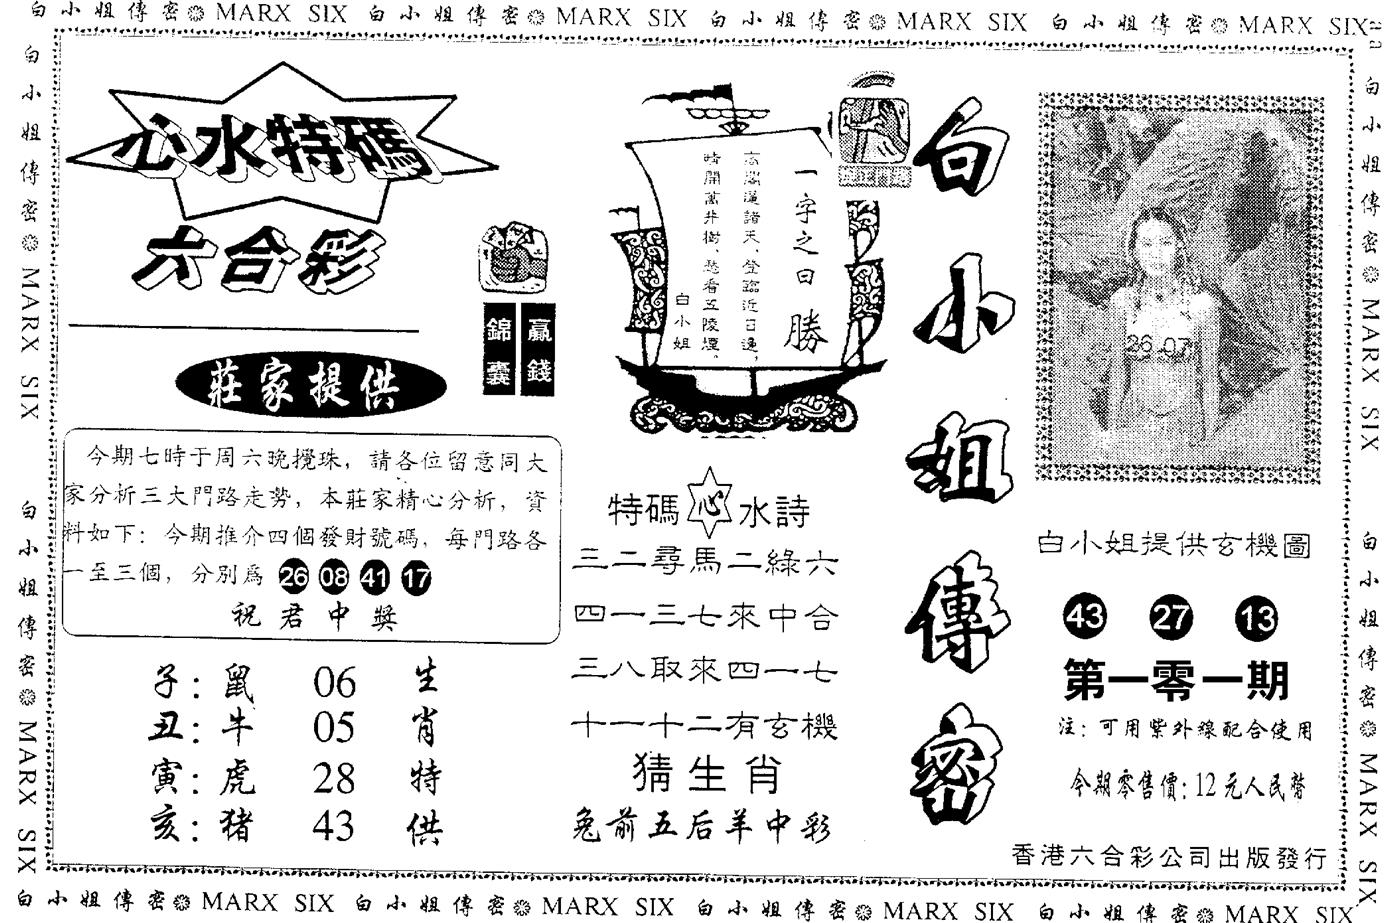 白小姐傳密 MARX SIX 白小姐傳密 MARX SIX 白小姐傳密 MARX SIX 白小姐傳密 MARX SIX
白小姐傳密 MARX SIX 白小姐傳密 MARX SIX
心水特碼
六合彩
贏錢
錦囊
莊家提供
今期七時于周六晚攪珠，請各位留意同大
家分析三大門路走勢，本莊家精心分析，資
料如下：今期推介四個發財號碼，每門路各
一至三個，分別爲 26 08 41 17
祝君中獎
子：鼠 06 生
丑：牛 05 肖
寅：虎 28 特
亥：猪 43 供
一字之曰 勝
諸天，登臨近日邊，
晴開萬井樹，愁看五陵煙。
白小姐
特碼心水詩
三二尋馬二綠六
四一三七來中合
三八取來四一七
十一十二有玄機
猜生肖
兔前五后羊中彩
白小姐傳密
26 07
白小姐提供玄機圖
43 27 13
第一零一期
注：可用紫外線配合使用
今期零售價：12元人民幣
香港六合彩公司出版發行
白小姐傳密 MARX SIX 白小姐傳密 MARX SIX
白小姐傳密 MARX SIX 白小姐傳密 MARX SIX 白小姐傳密 MARX SIX 白小姐傳密 MARX SIX